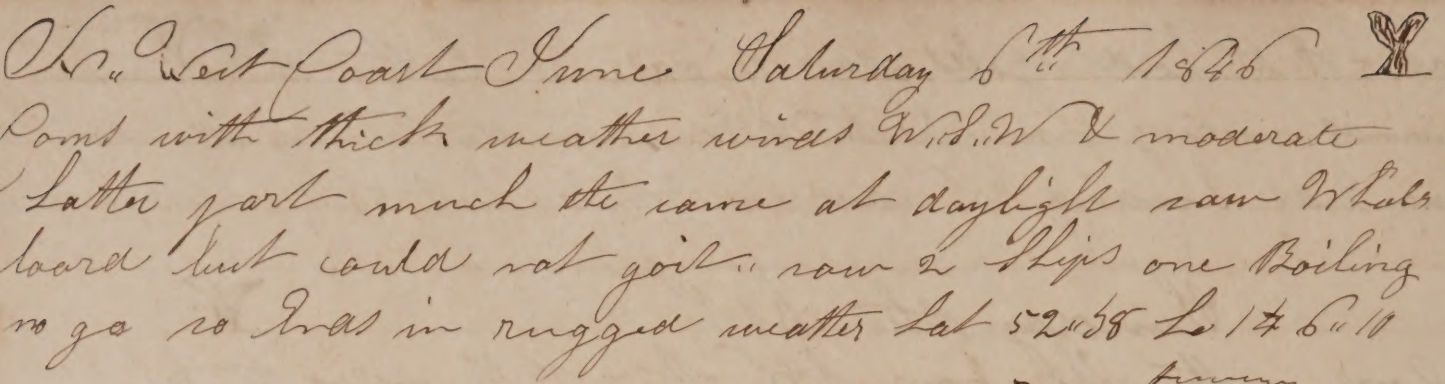 N,, West Coast June Saturday 6th 1846
Coms with thick weather winds W,,S,,W & moderate
Latter part much the same at daylight saw Whals
loard but could not goit,, saw 2 Ships one Boiling
no go so Ends in rugged weather Lat 52,,38 Lo 146,,10